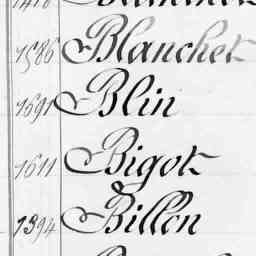 1586 Blanchet
1691 Blin
1611 Bigot
1394 Billon